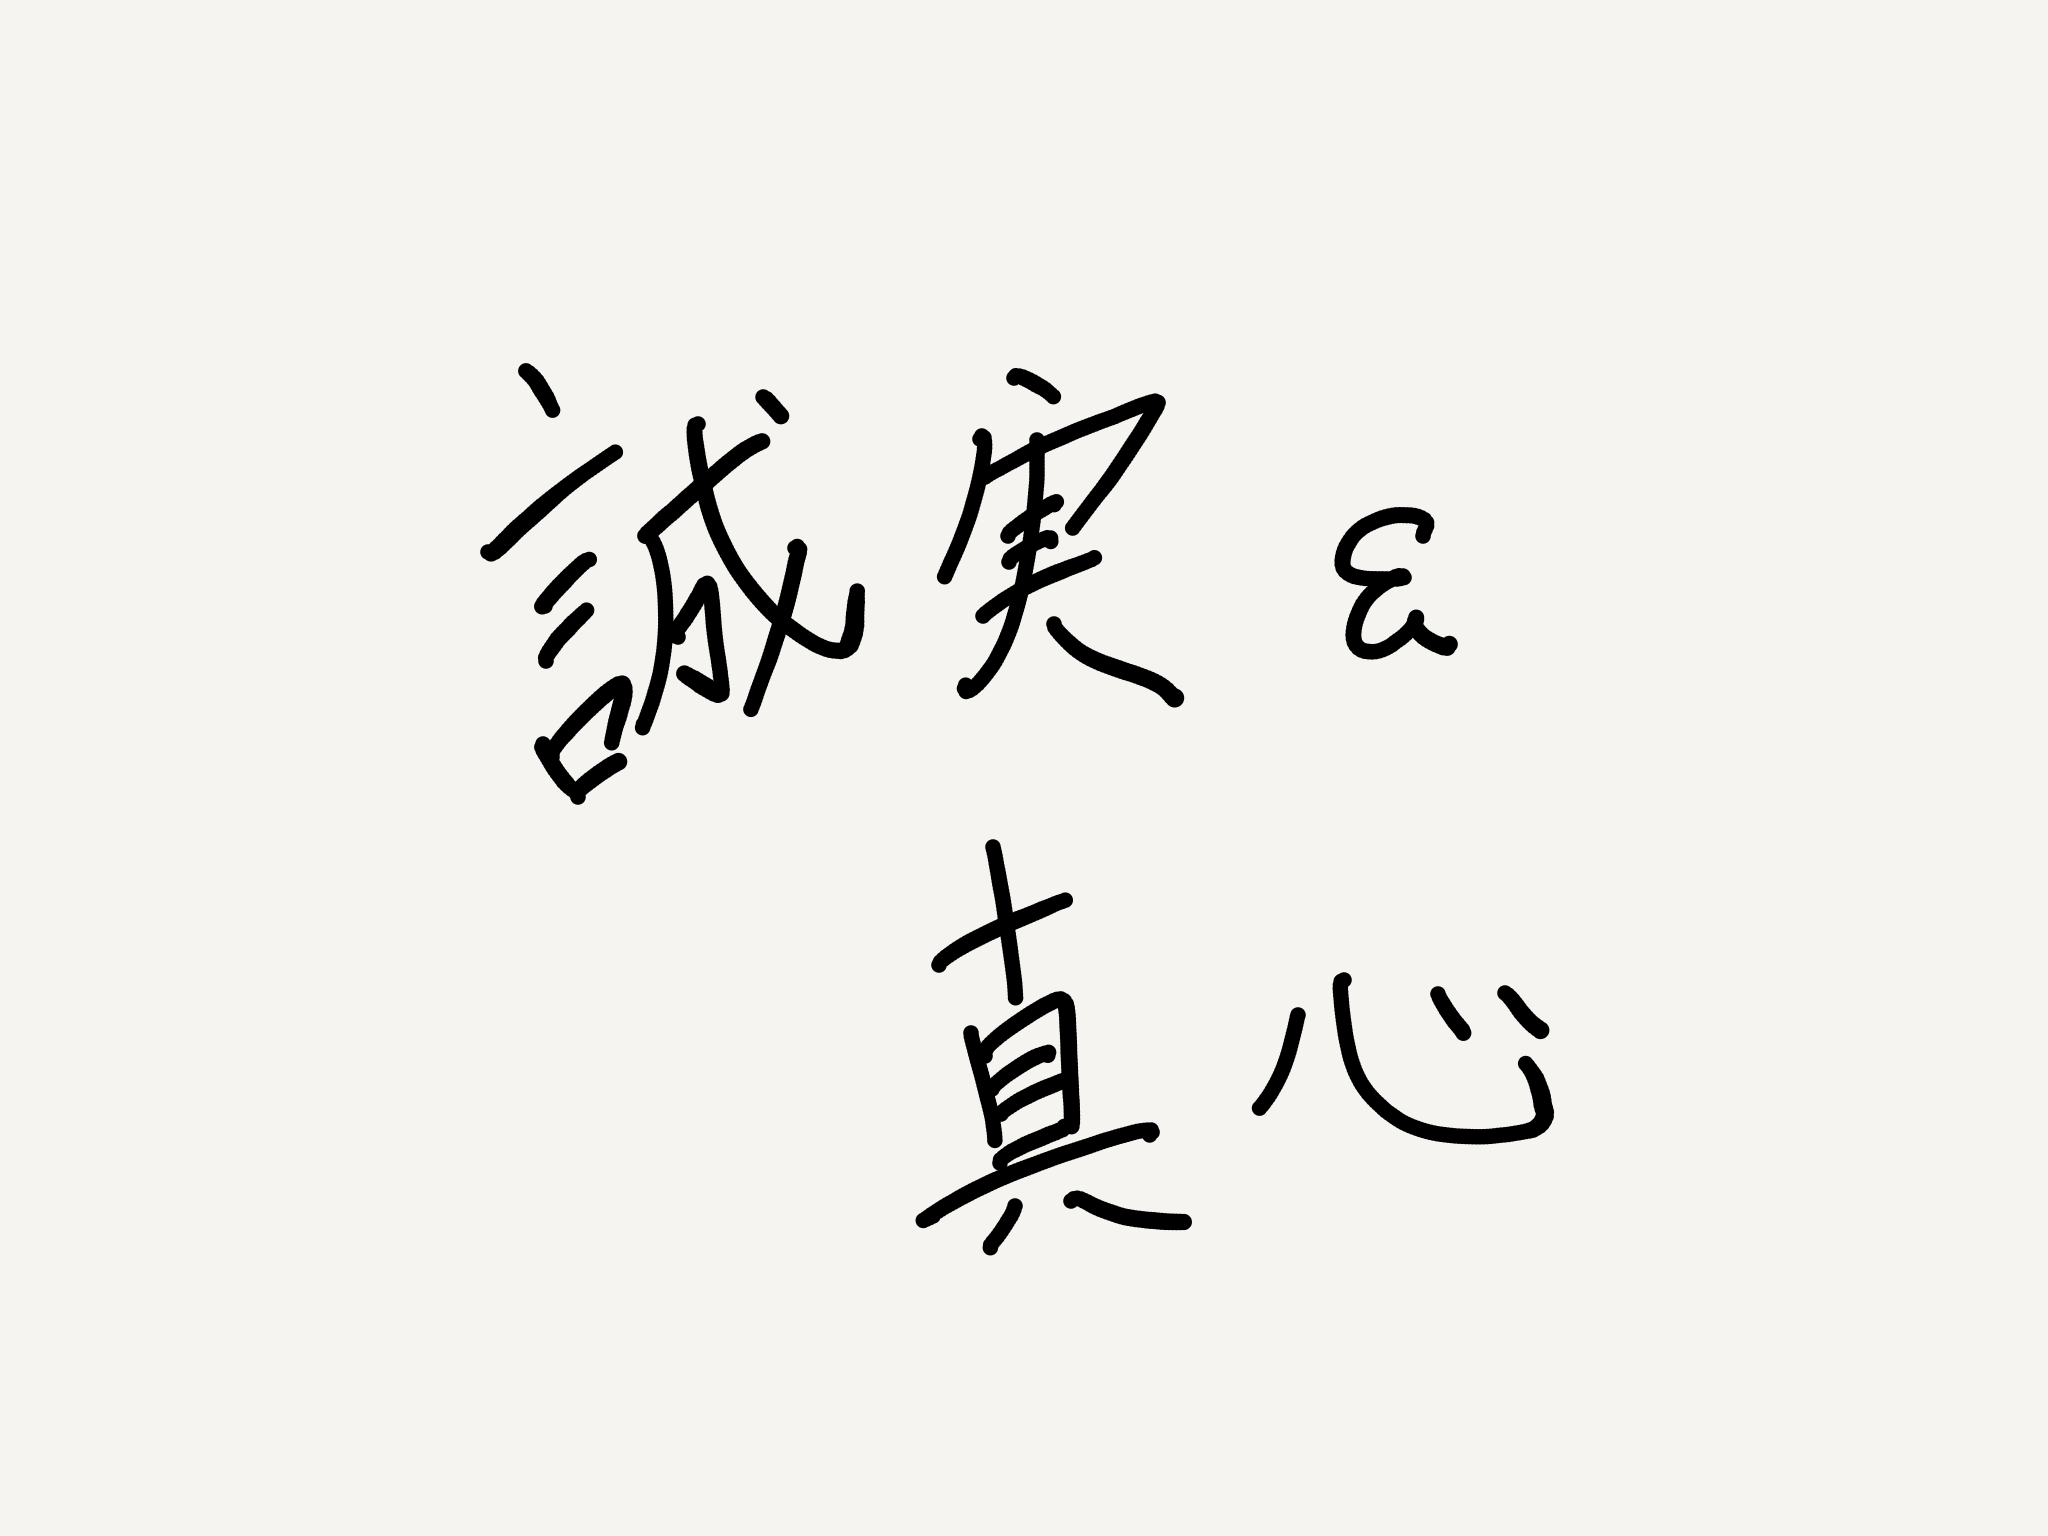 誠実 &
真心